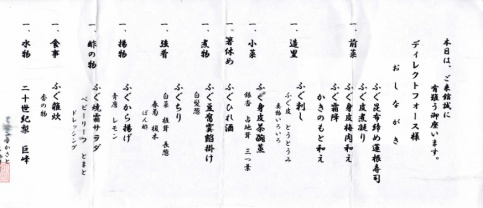 本日は、ご来館誠に
有難う御座います。
ディレクトフォース様
おしながき
一、前菜
ふぐ昆布締め蓮根寿司
ふぐ皮煮凝り
ふぐ身皮梅肉和え
ふぐ霜降
かきのもと和え
一、造里
ふぐ刺し
ふぐ皮 とうとうみ
薬物いろいろ
一、小菜
ふぐ身皮茶碗蒸
銀杏 占地茸 三つ葉
一、箸休め
ふぐひれ酒
一、煮物
ふぐ豆腐霙餡掛け
白髪葱
一、強肴
ふぐちり
白菜 椎茸 長葱
春菊 榎木
ぽん酢
一、揚物
ふぐから揚げ
青唐 レモン
一、酢の物
ふぐ焼霜サラダ
ベビーリーフ とまと
ドレッシング
一、食事
ふぐ雑炊
香の物
一、水物
二十世紀梨 巨峰